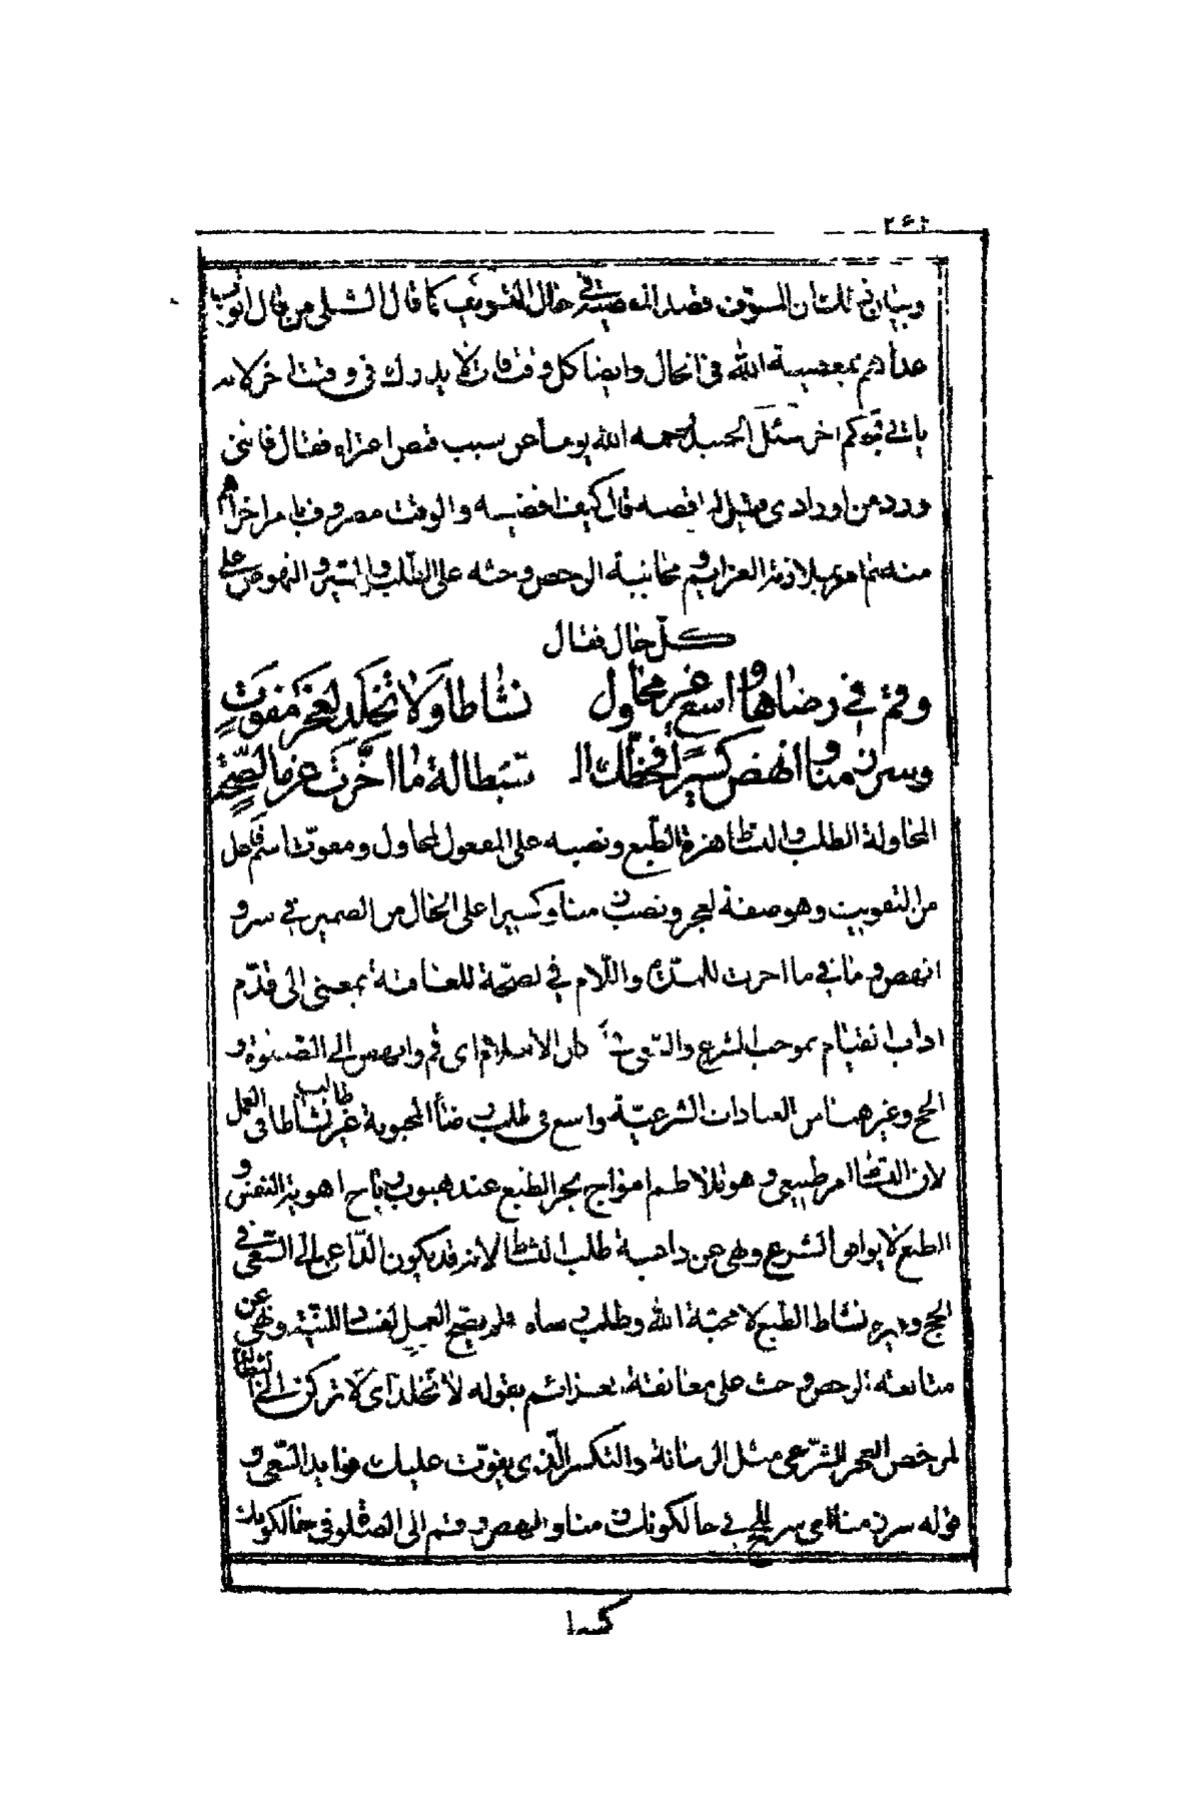 وبيان ذلك ان المسوّف قصد المعصية في حال التسويف كما قال الشبلي من قال اتوب
غدا هم بمعصية الله في الحال وايضا كل وقت فات لا يدرك في وقت اخر لانه
اخر سئل الجنيد رحمه الله يوما عن سبب فقال فاتنى
ورد من اورادى فقيل له اقضه قال كيف اقضيه والوقت مصروف بامر اخر
العزايم و مجانبة الرخص وحثه على الطلب والسير والنهوض على
كلّ حال فقال
وقم في رضاها واسع غير محاول نشاطا ولا تخلد لعجز مفوّت
وسر زمنا وانهض كسيرا فحظك الـ ـبطالة ما اخّرت عزما لصحّة
المحاولة الطلب والنشاط هزة الطّبع ونصبه على المفعول لمحاول ومفوّت اسم فاعل
من التفويت وهو صفة لعجز ونصب وكسيرا على الحال من الضمير في سر و
انهض وما في ما اخرت واللام في لصحّة للغاية بمعنى الى قدّم
اداب القيام بموجب الشرع والسّعي دار الاسلام اى قم وانهض الى الصّلوة و
الحج وغيرهما من العبادات الشرعيّة واسع في طلب رضا المحبوبة غير طالب نشاطا في العمل
لان النشاط امر طبيعي وهو تلاطم امواج بحر الطبع عند هبوب رياح اهوية النفس و
الطبع لا يوافق الشرع ونهى عن داعية طلب النشاط لانه قد يكون الدّاعي الى السّعي في
الحج وغيره نشاط الطبع لا محبّة الله وطلب رضاه فلم يصحّ العمل لفساد النيّة ونهى عن
متابعة الرخص وحث على معانقة العزائم بقوله لا تخلد اى لا تركن الى
لمرخص العجز الشرعي مثل الزمانة والتكسر الّذى يفوّت عليك فوايد السّعي و
قوله سر زمنا اى سر في حال كونك زمنا وانهض وقم الى الصلوة في حال كونك
كسيرا